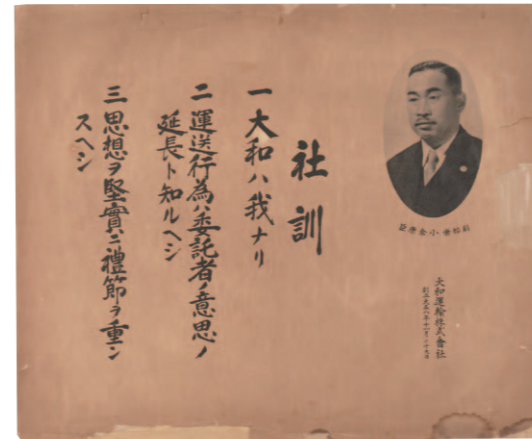 社訓
一 大和ハ我ナリ
二 運送行為ハ委託者ノ意思ノ
延長ト知ルヘシ
三 思想ヲ堅實ニ禮節ヲ重ン
スヘシ
大和運輸株式會社